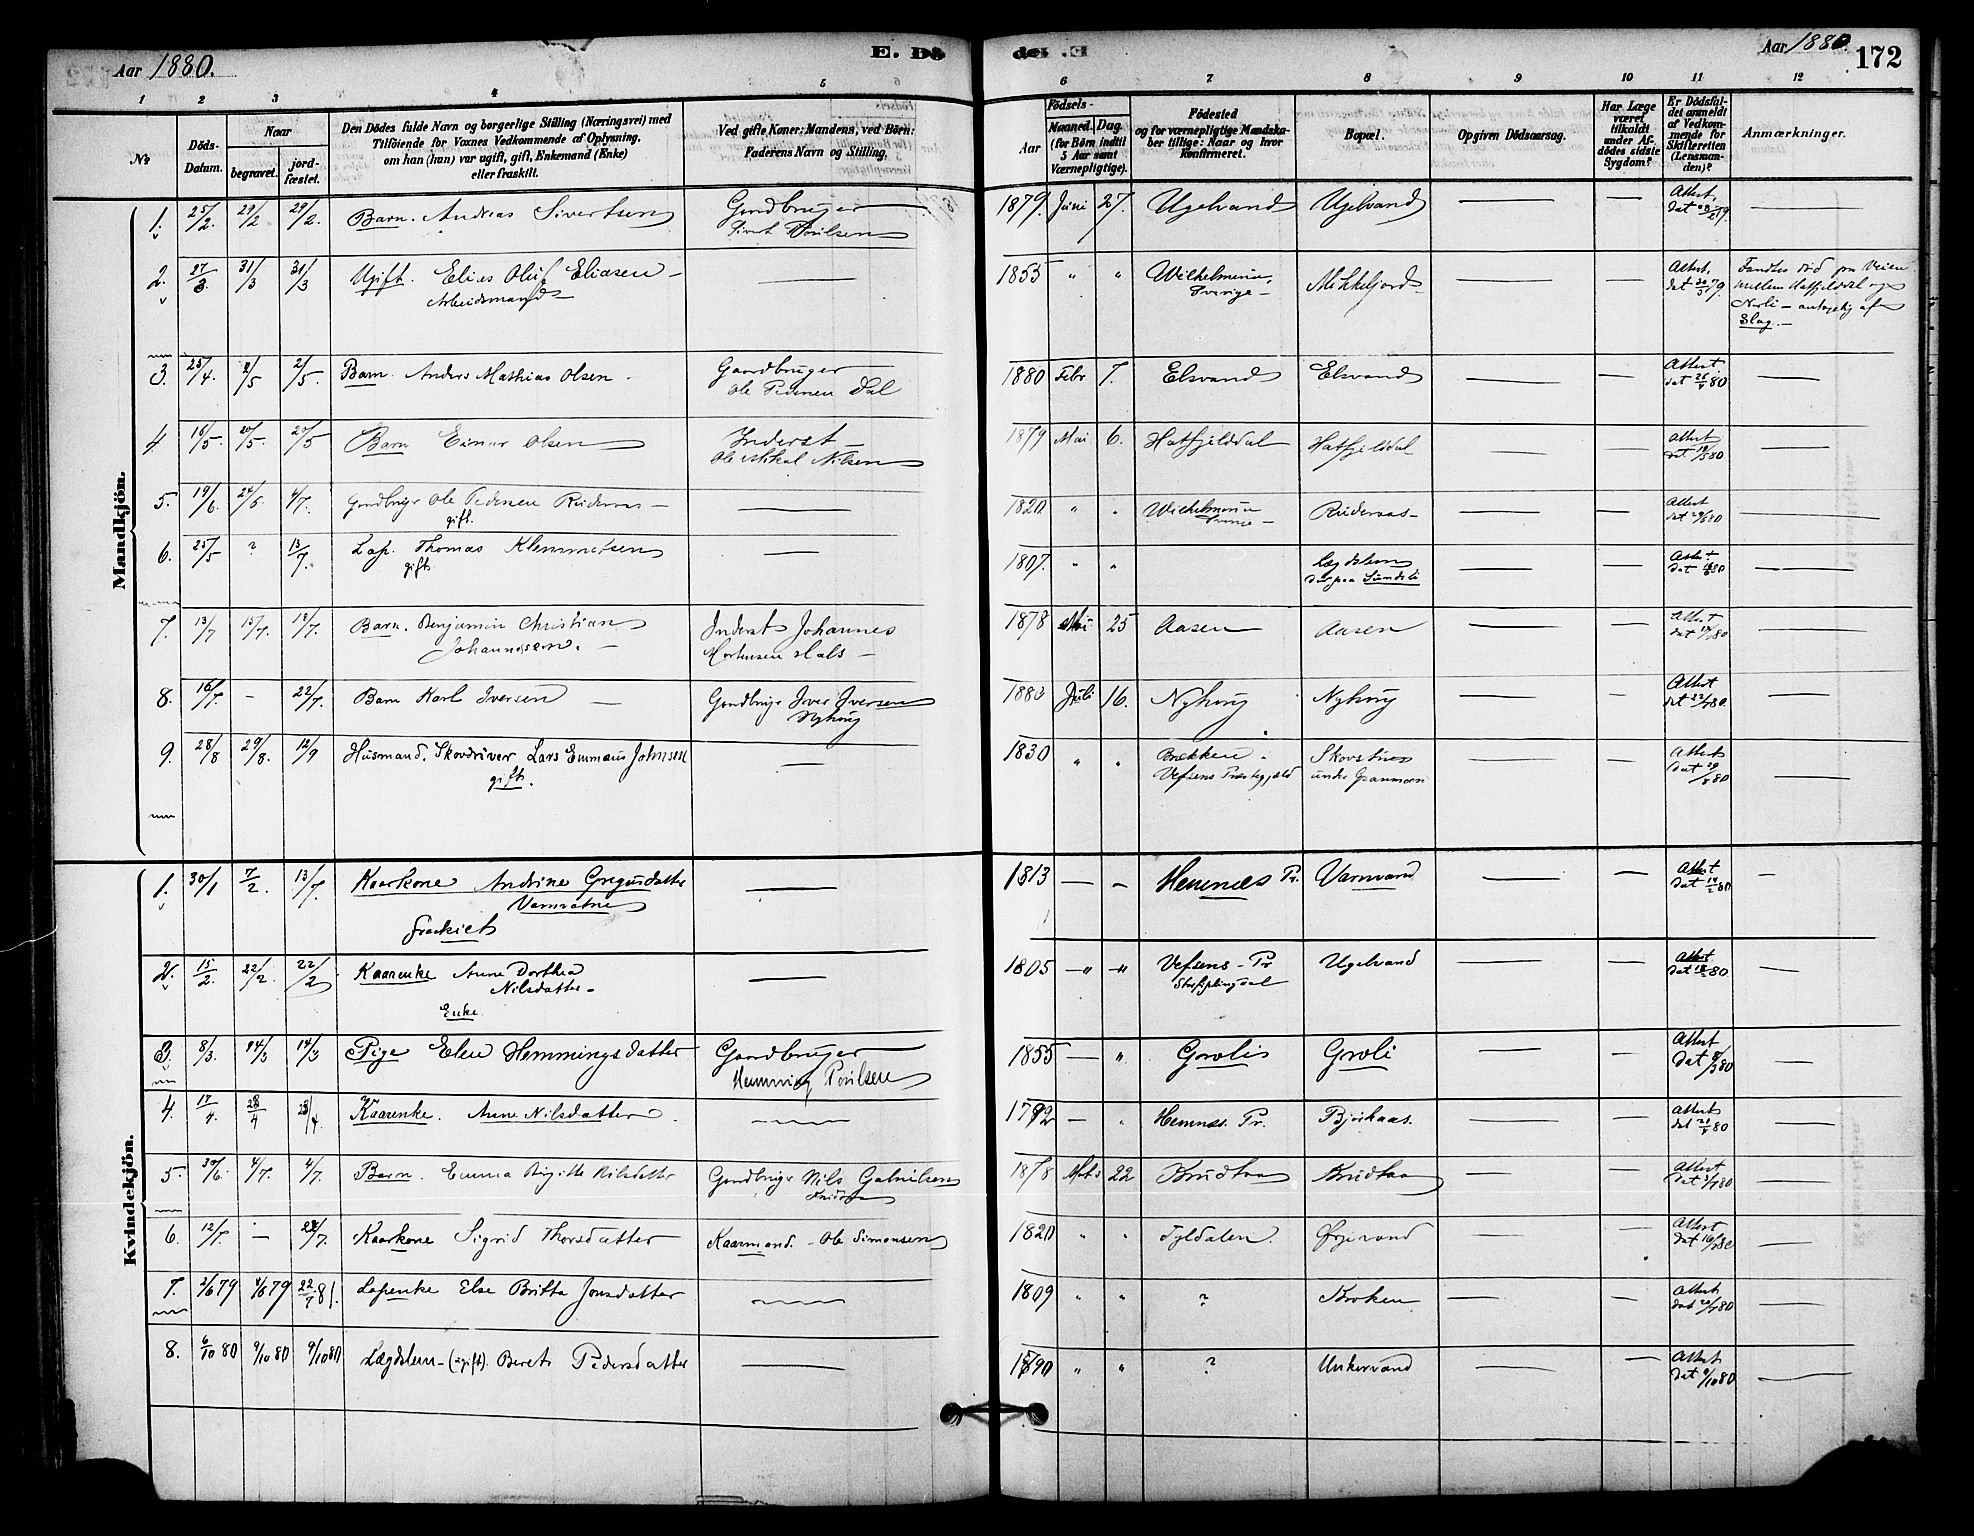 Aar 1880.
E. Dö
de. E
Aar 1880.
172
1 2 3 4 5 6 7 8 9 10 11 12
No
Döds-
Datum.
Naar
begravet. jord-
fæstet.
Den Dödes fulde Navn og borgerlige Stilling (Næringsvei) med
Tilföiende for Voxnes Vedkommende af Oplysning,
om han (hun) var ugift, gift, Enkemand (Enke)
eller fraskilt.
Ved gifte Koner: Mandens, ved Börn:
Faderens Navn og Stilling.
Födsels-
Aar
Maaned. Dag.
(for Börn indtil
5 Aar samt
Værnepligtige).
Födested
og for værnepligtige Mandska-
ber tillige: Naar og hvor
konfirmeret.
Bopæl.
Opgiven Dödsaarsag.
Har Læge
været
tilkaldt
under Af-
dödes sidste
Sygdom?
Er Dödsfal-
det anmeldt
af Vedkom-
mende for
Skifteretten
(Lensman-
den)?
Anmærkninger.
Mandkjön.
1. 25/2. 29/2 29/2. Barn. Andreas Sivertsen Gaardbruger 1879. Juni 27. Ugelvand Ugelvand — — Attest,
Sivert Poulsen
2. 27/3. 31/3 31/3 Ugift. Elias Oluf Eliasen — 1855 " " Wilhelmina, Mikkeljord — — Attest, Fandtes død paa Veien
Arbeidsmand Sverige — mellem Hatfjelddal og
— antagelig af
Slag. —
3. 25/4. 2/5 2/5. Barn. Anders Mathias Olsen Gaardbruger 1880 Febr 7. Elsvand Elsvand — — Attest
Ole Pedersen Dal dat 26/4 80
4. 16/5. 20/5. 20/5 Barn Einar Olsen Inderst — 1879 Mai 6. Hatfjelddal Hatfjelddal — — Attest
Ole Mikal Nilsen dat 19/5 80
5. 19/6. 24/6. 4/7. Gaardbrugr Ole Pedersen — 1820 " " Wilhelmina — — Attest
gift. Sverige —
6. 25/5 ? 13/7. Lap. Thomas Klemmetsen — 1807. " " Lægdslem — — Attest
gift.
7. 13/7 15/7. 18/7. Barn. Benjamin Christian Inderst Johannes 1878 Mai 25 Aasen Aasen — — Attest
Johannesen. — Mortensen Hals —
8. 16/7. - 22/7. Barn Karl Iversen — Gaardbrugr Iver Iversen 1880 Juli 16. Nyborg Nyborg — — Attest
Nyborg dat 22/7 80.
9. 28/8 29/8. 12/9 Husmand. Skovdriver Lars Emmaus Johnsen — 1830 " " Brekken Skovstuen — — Attest
gift. Vefsens Præstegjeld under Granmoen
Kvindekjön.
1. 30/1 7/2. 13/7. Kaarkone Andrine Gregusdatter — 1813 — — Hemnæs Pr. Varnvand — — Attest —
Fraskilt dat 14/2 80
2. 15/2. 22/2. 22/2 Kaarenke Anne Dorthea — 1805 —"— —"— Vefsens — Pr Ugelvand — — Attest —
Nilsdatter — dat 18/2 80
Enke.
3. 8/3. 14/3 14/3 Pige Elen Hemmingsdatter Gaardbruger 1855 — " Grøli Grøli — — Attest —
Hemming Poulsen dat 8/3 80
4. 17/4. 23/4 23/4 Kaarenke. Anne Nilsdatter — 1792 — " Hemnæs. Pr. Bjørkaas. — — Attest —
5. 30/6. 4/7. 4/7. Barn. Emma Birgitte Nilsdatter Gaardbrugr Nils Gabrielsen 1878 22 Krudtaa Krudtaa — — Attest —
6. 12/7. — 22/7. Kaarkone Sigrid Thorsdatter Kaarmand. - Ole Simonsen 1820 " " Tyldalen. — — Attest —
7. 2/6 79 4/6 79 22/7 81. Lapenke Else Britta Jonsdatter — 1809 " " ? Kroken — — Attest —
8. 6/10 80 9/10 80 9/10 80 Lægdslem — (ugift). Beret Pedersdatter — 1890 " " ? Unkervand — — Attest —
dat 9/10 80